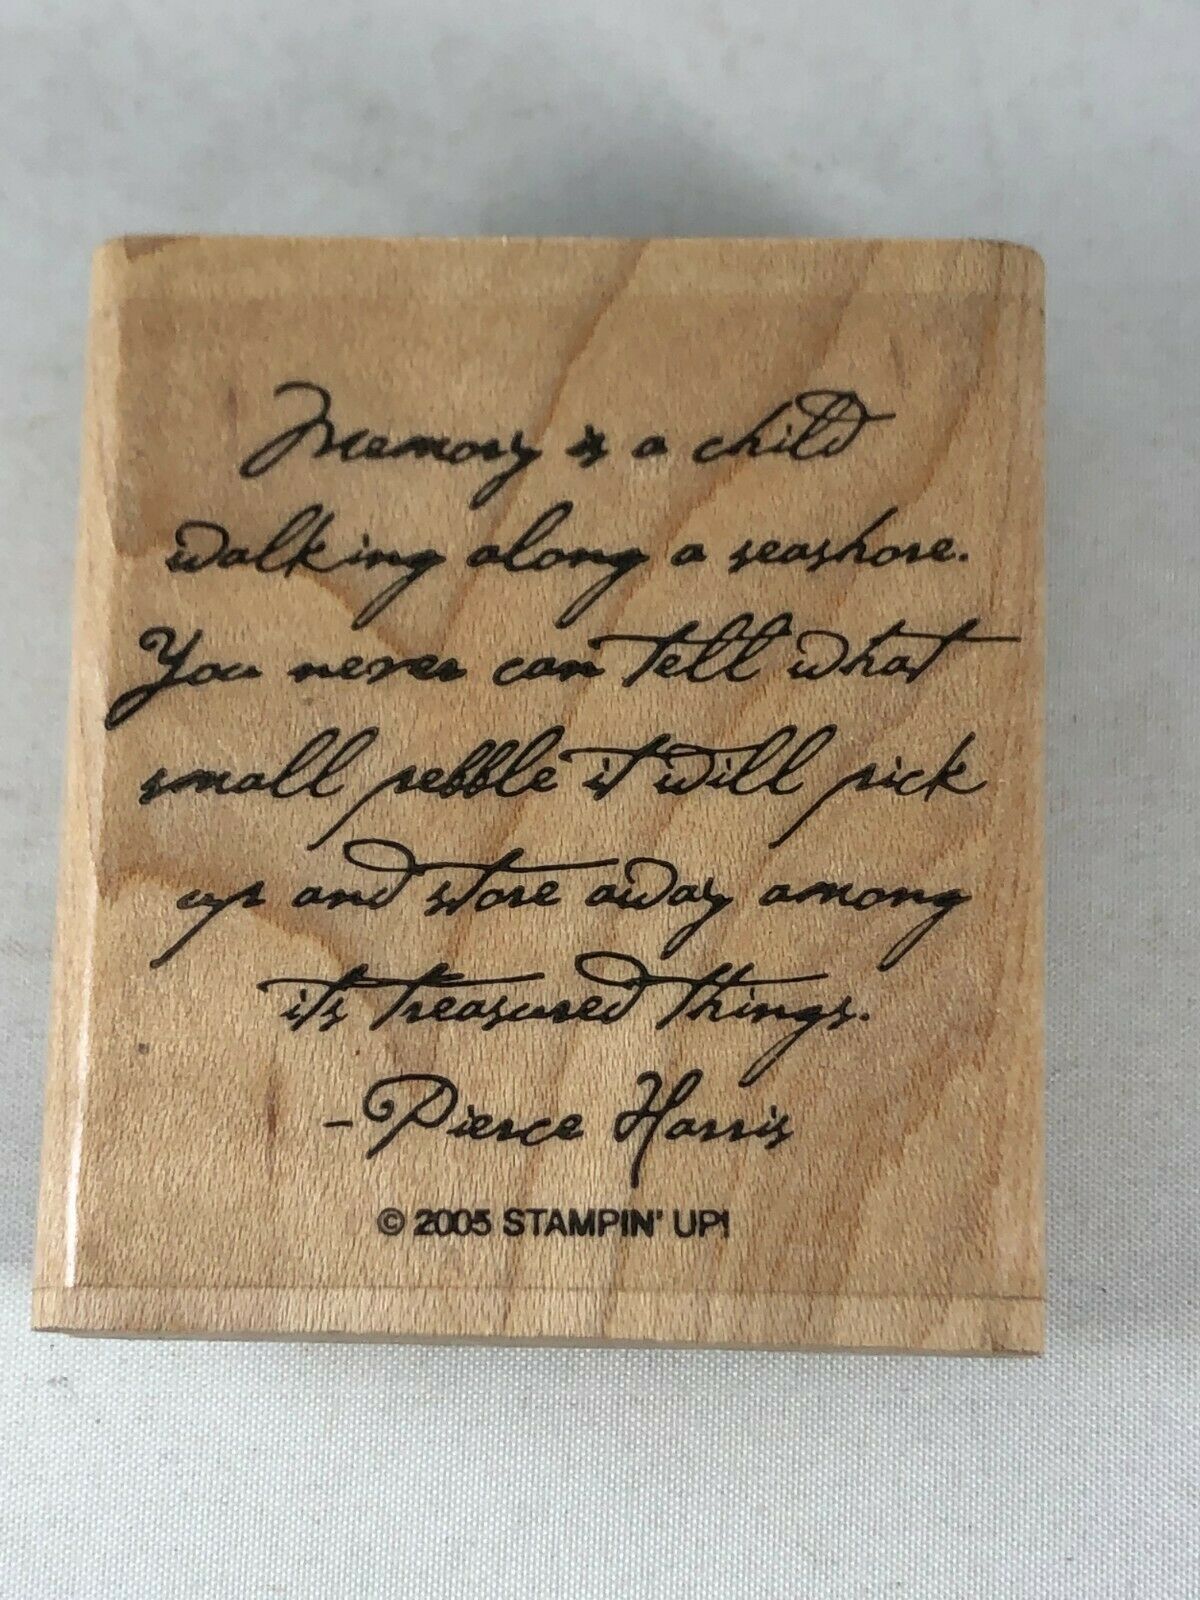 Memory is a child
walking along a seashore.
You never can tell what
small pebble it will pick
up and store away among
its treasured things.
-Pierce Harris
© 2005 STAMPIN' UP!